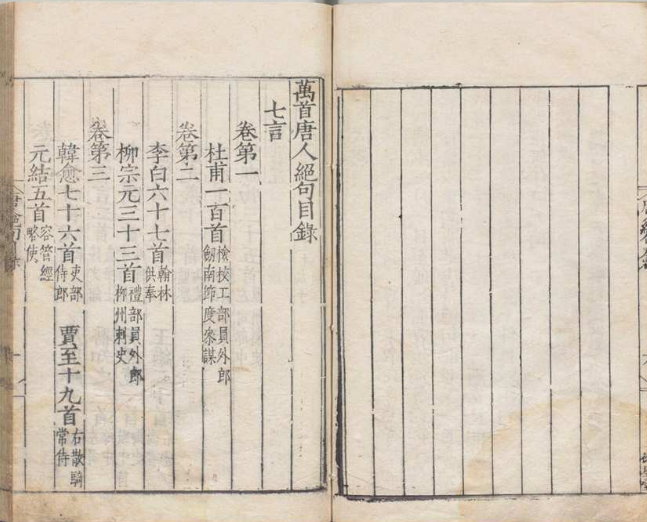 萬首唐人絕句目錄
七言
卷第一
杜甫一百首 檢校工部員外郎劒南節度叅謀
卷第二
李白六十七首 翰林供奉
柳宗元三十三首 禮部員外郎柳州刺史
卷第三
韓愈七十六首 吏部侍郎 賈至十九首 右散騎常侍
元結五首 容管經略使